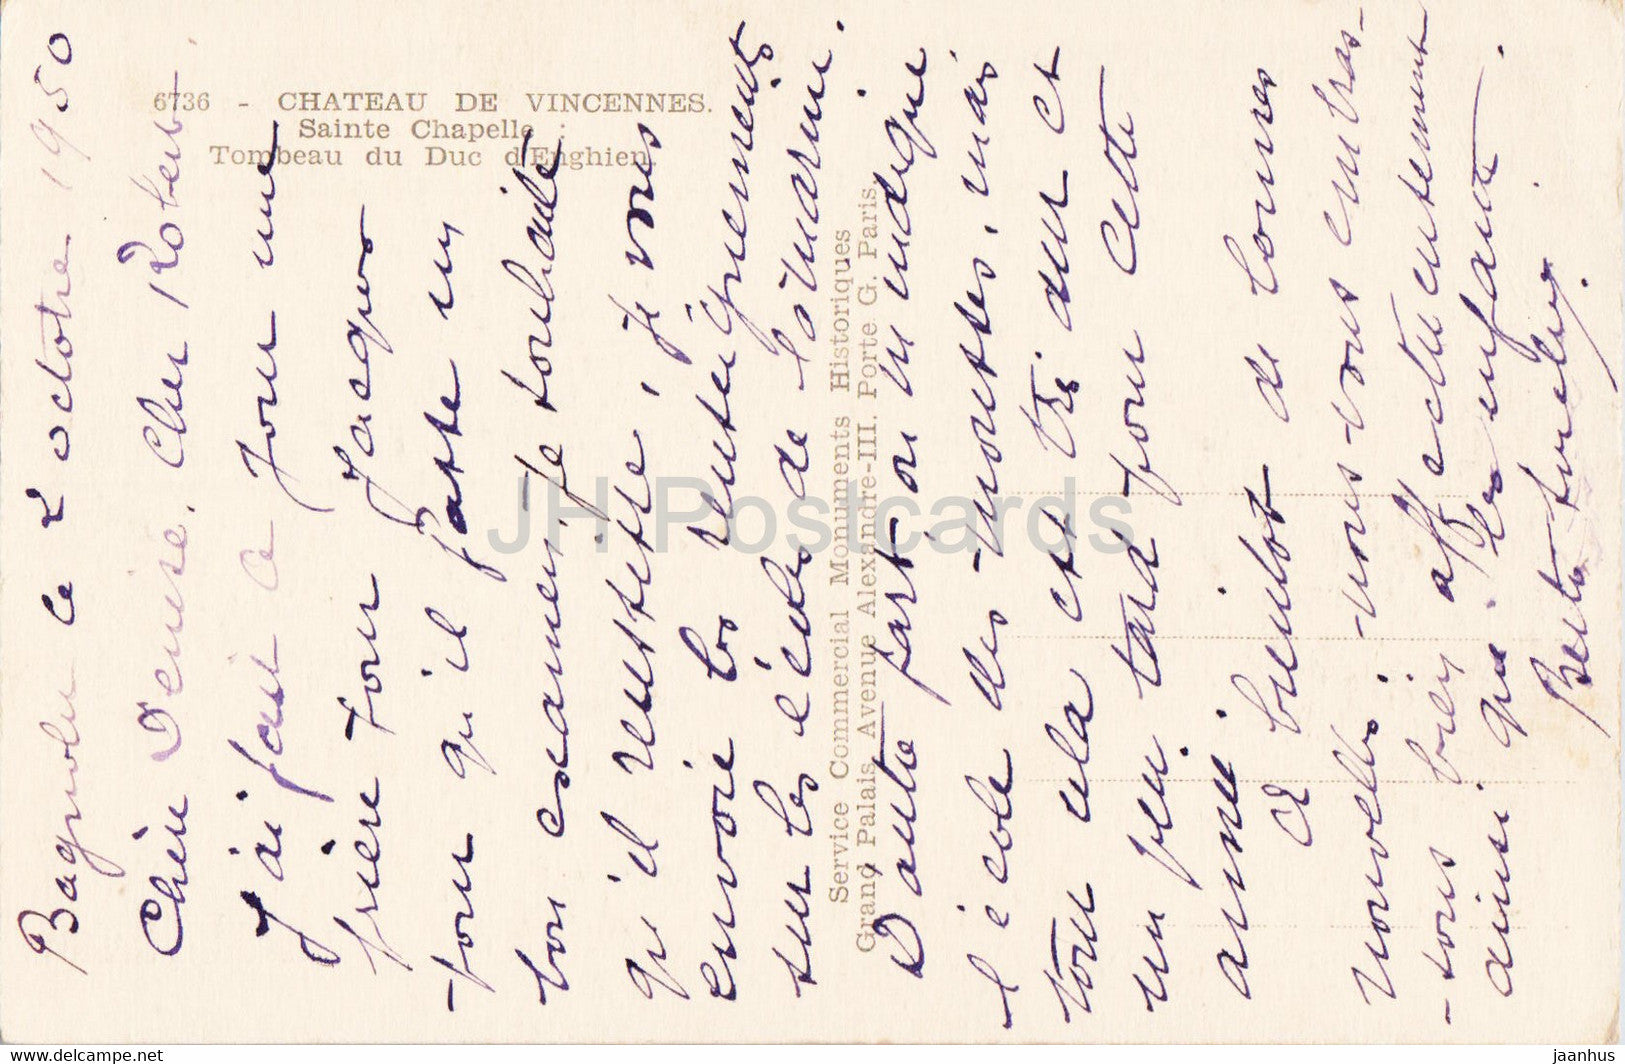 6736 - CHATEAU DE VINCENNES.
Sainte Chapelle :
Tombeau du Duc d'Enghien.
Service Commercial Monuments Historiques
Grand Palais Avenue Alexandre-III. Porte G. Paris.
Bagnolu le 2 octobre 1950
Chère Denise, Cher Robert
J'ai fait ce jour une
prière pour Jacques
pour qu'il passe un
bon examen, je souhaite
qu'il réussisse, je vous
envoie les renseignements
sur les écoles de la Marine.
D'autre part on m'indique
l'école des mousses, mais
pour cela est très dur et
un peu tard pour cette
année.
A bientôt de bonnes
nouvelles, nous vous embras-
-sons bien affectueusement
ainsi que les enfants.
JH Postcards
https://www.delcampe.net
jaanhus